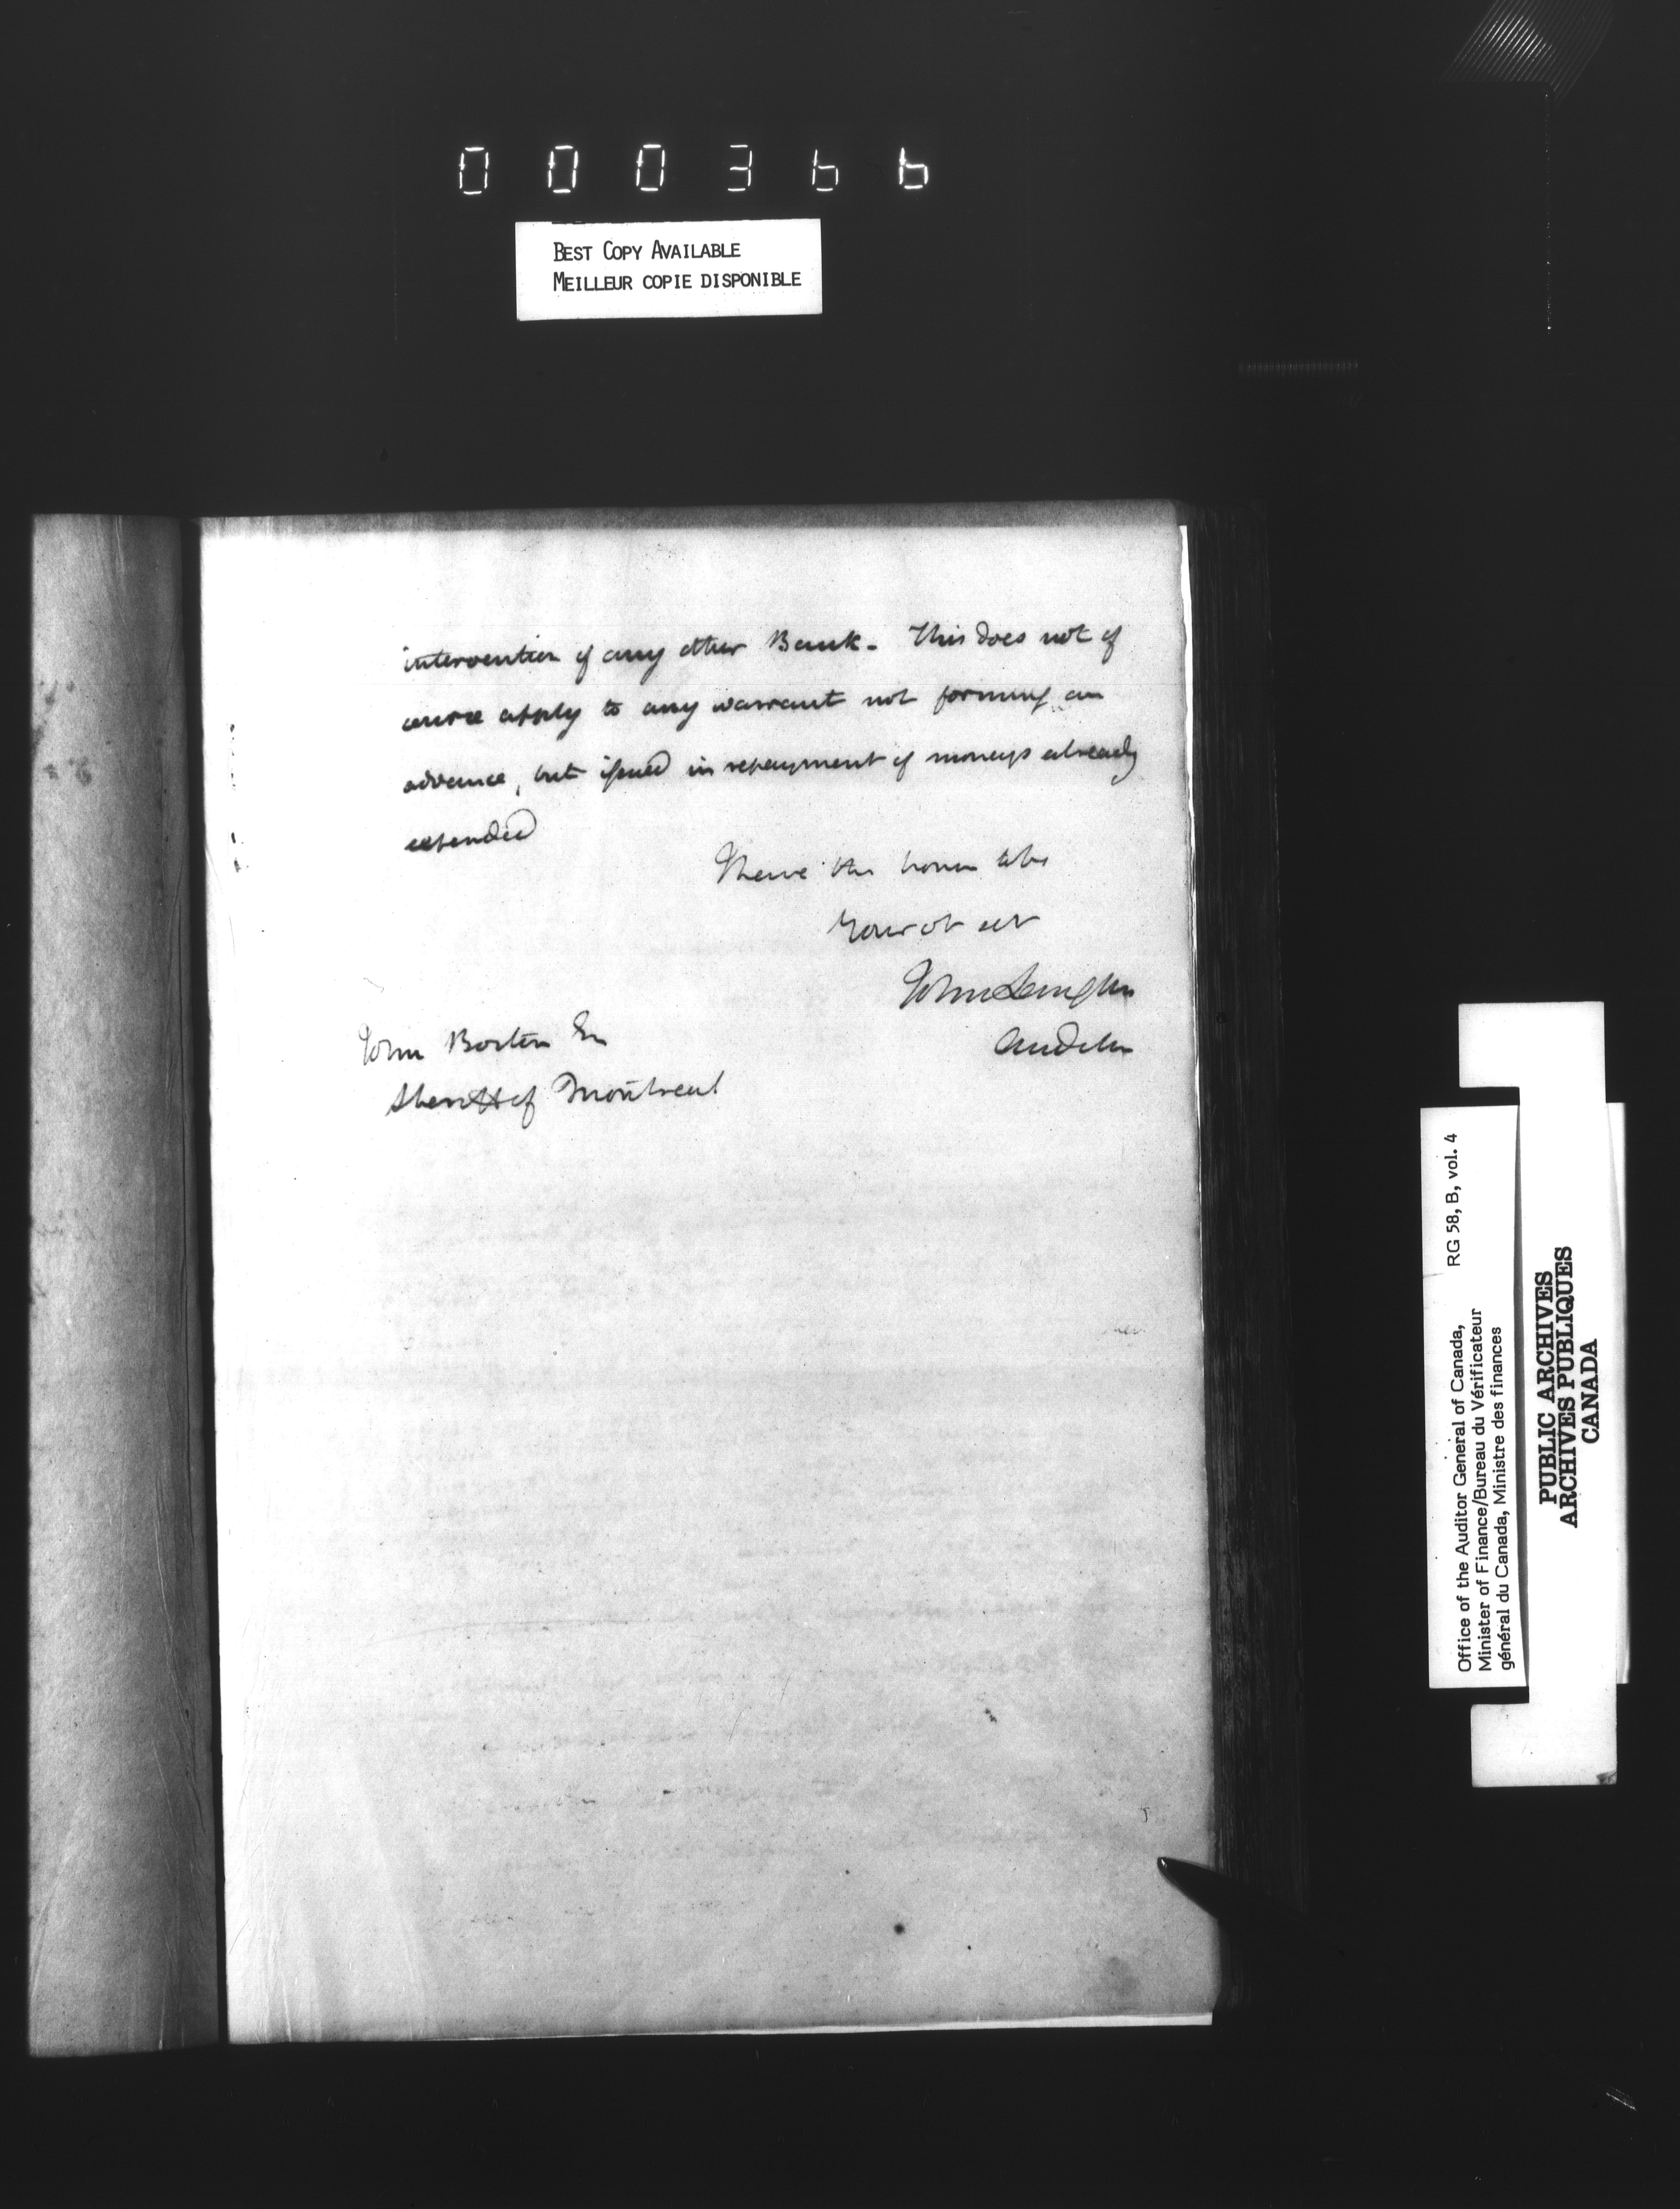 000366
BEST COPY AVAILABLE
MEILLEUR COPIE DISPONIBLE
intervention of any other Bank. This does not of
course apply to any warrant not forming an
advance, but issued in repayment of moneys already
expended
I have the honor to be
Your ob servt
John Langton
Auditor
John Boston Esq
Sheriff of Montreal
Office of the Auditor General of Canada, RG 58, B, vol. 4
Minister of Finance/Bureau du Vérificateur
général du Canada, Ministre des finances
PUBLIC ARCHIVES
ARCHIVES PUBLIQUES
CANADA